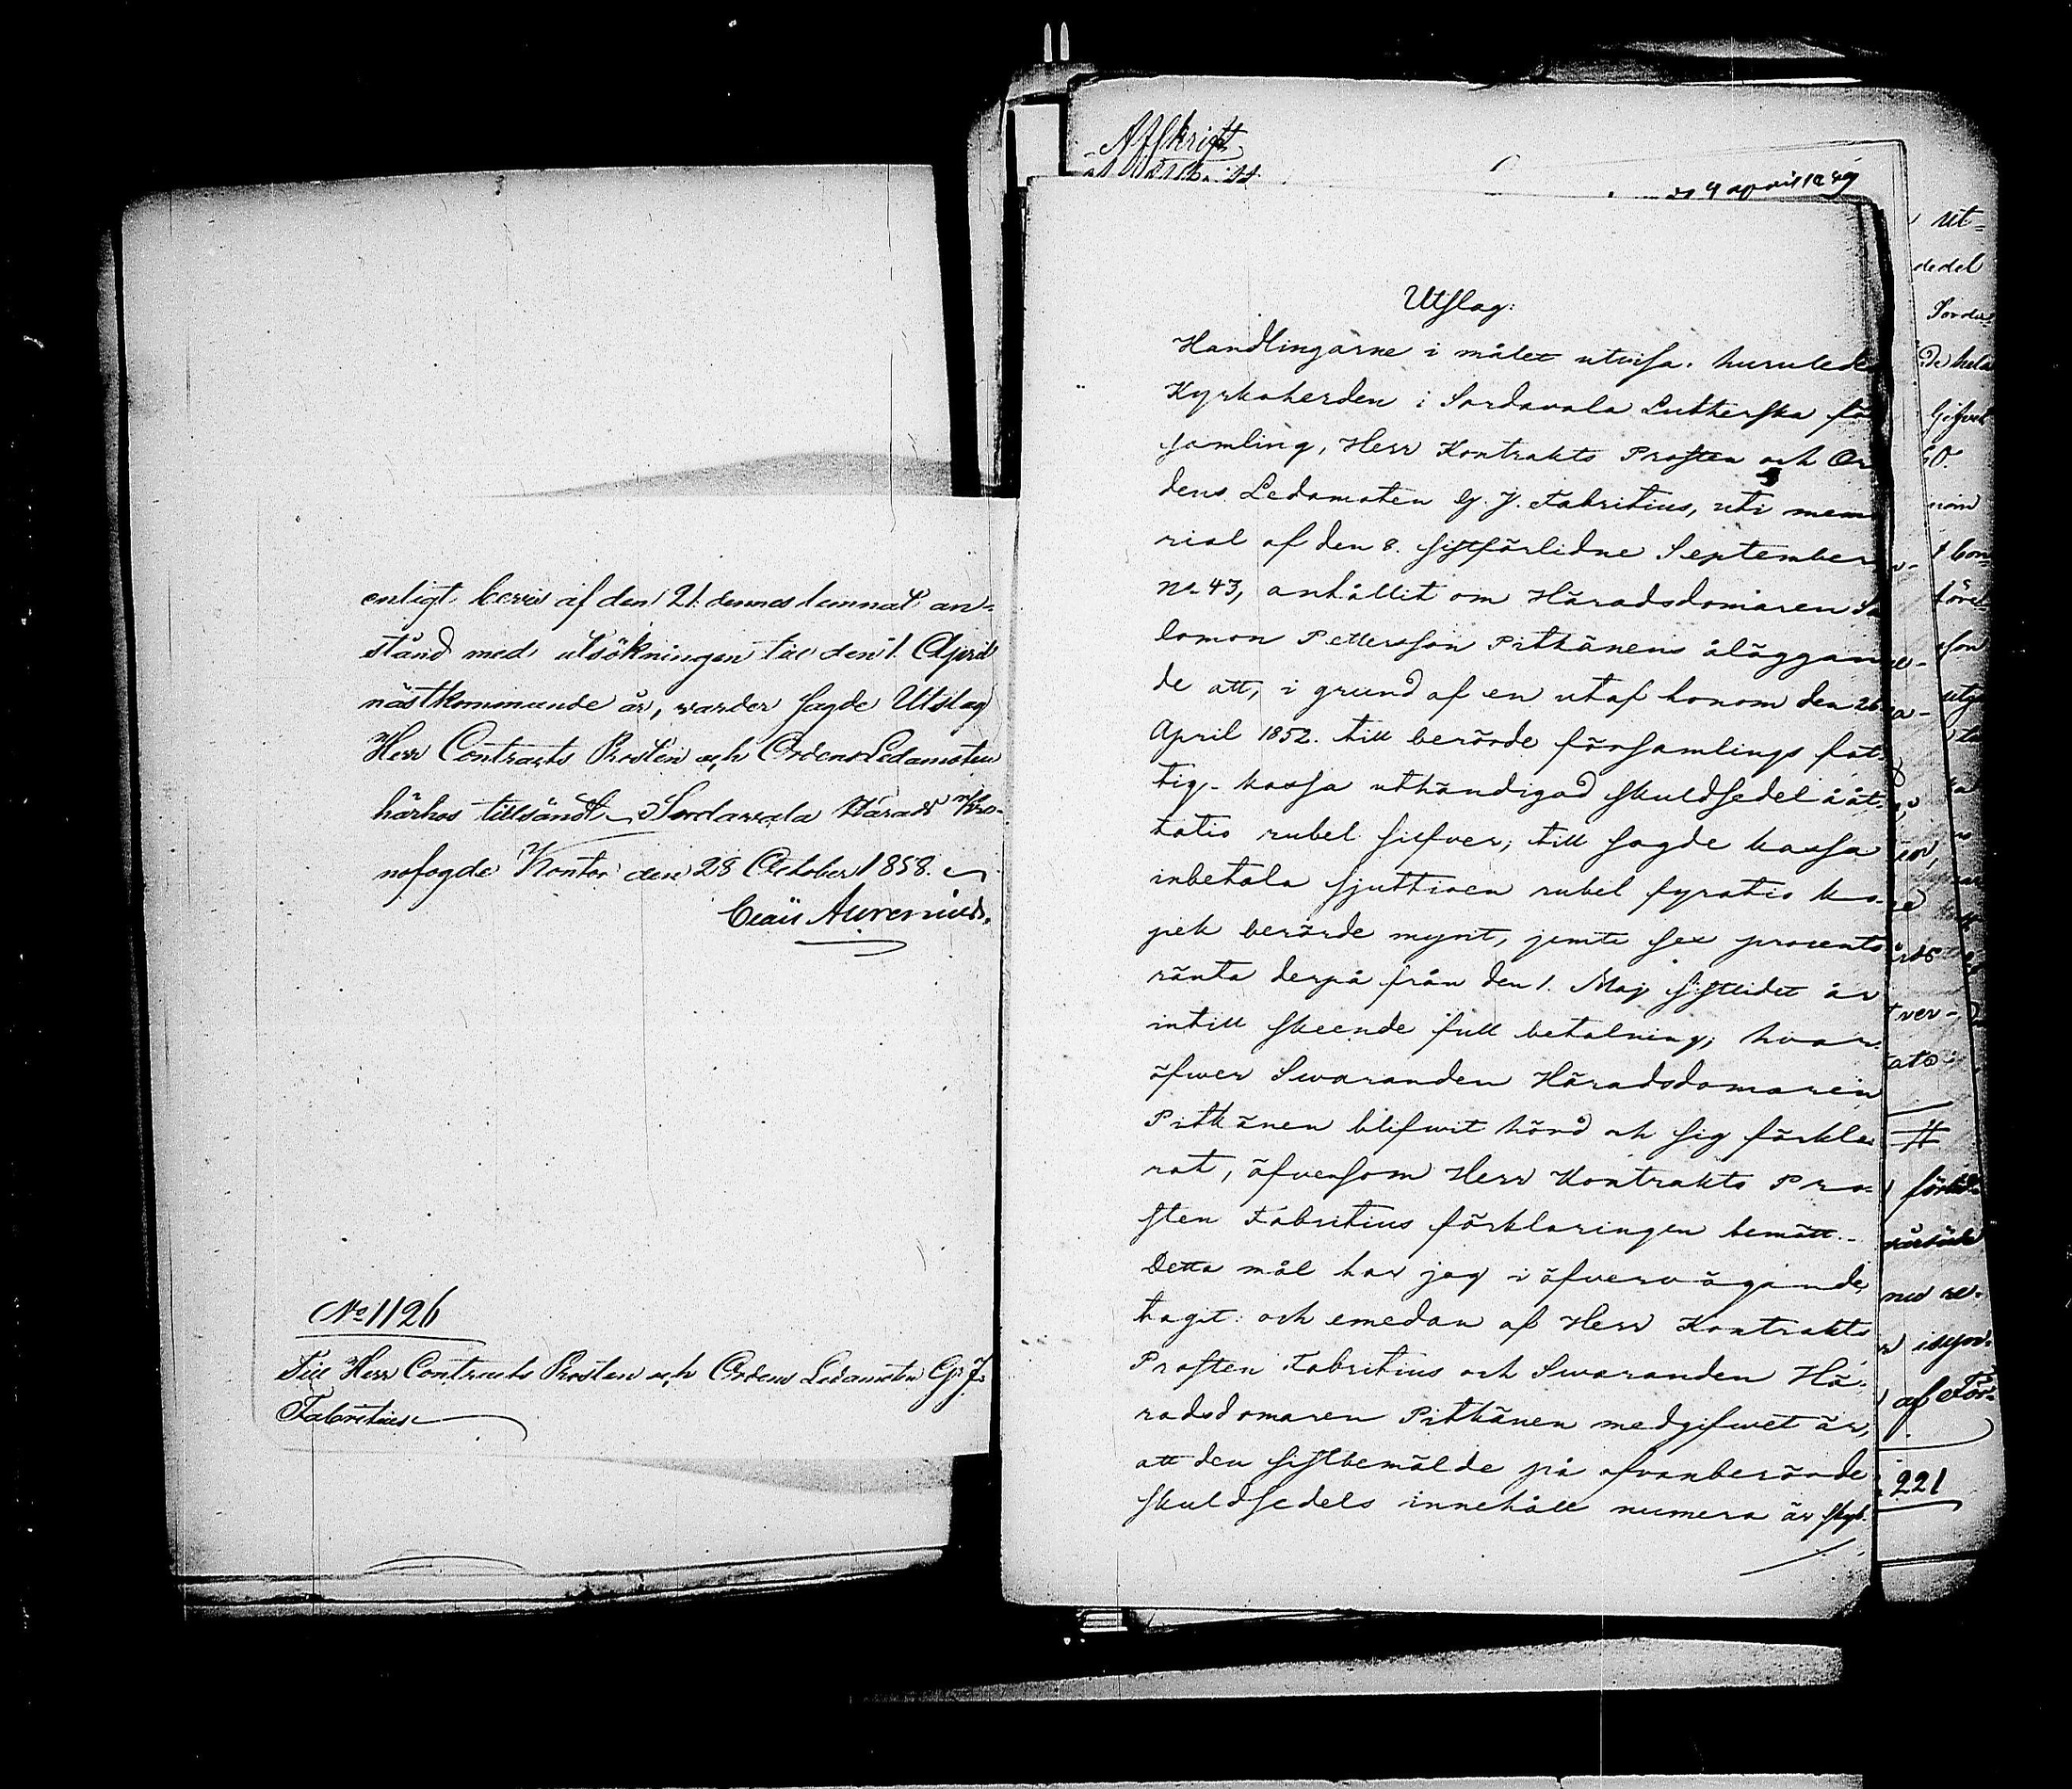 enligt bevis af den 21. dennes lemnat an-
stånd med utsökningen till den 1. April
nästkommande år, warder sagde Utslag
Herr Contracts Prosten och Ordens Ledamoten
härhos tillsändt. Sordavala Härads Kro-
nofogde Kontor den 28 October 1858.
Claës Aurenius.
No 1126
Till Herr Contracts Prosten och Ordens Ledamoten G: J:
Fabritius
Afskrift
4 april 1859
Utslag:
Handlingarne i målet utvisa: huruledes
Kyrkoherden i Sordavala Lutherska för
samling, Herr Kontrakts Prosten och Or
dens Ledamoten G. J. Fabritius, uti memo
rial af den 8. sistförlidne September
No 43, anhållit om Häradsdomaren Sa
lomon Pettersson Pitkänens åläggan
de att, i grund af en utaf honom den 26
April 1852. till berörde församlings fat-
tig-kassa uthändigad skuldsedel å åt-
tatio rubel silfver; till sagde kassa
inbetala sjuttioen rubel fyratio ko-
pek berörde mynt, jemte sex procents
ränta derpå från den 1. Maj sistledet år
intill skeende full betalning; hvar-
öfwer Swaranden Häradsdomaren
Pitkänen blifwit hörd och sig förkla
rat, äfvensom Herr Kontrakts Pro-
sten Fabritius förklaringen bemött.-
Detta mål har jag i öfvervägande
tagit: och emedan af Herr Kontrakts
Prosten Fabritius och Swaranden Hä-
radsdomaren Pitkänen medgifwet är,
att den sistbemälde på ofvanberörde
skuldsedels innehåll numera är skyl-
ut-
dedel
Sorda-
hela
60.
tver-
af För-
221